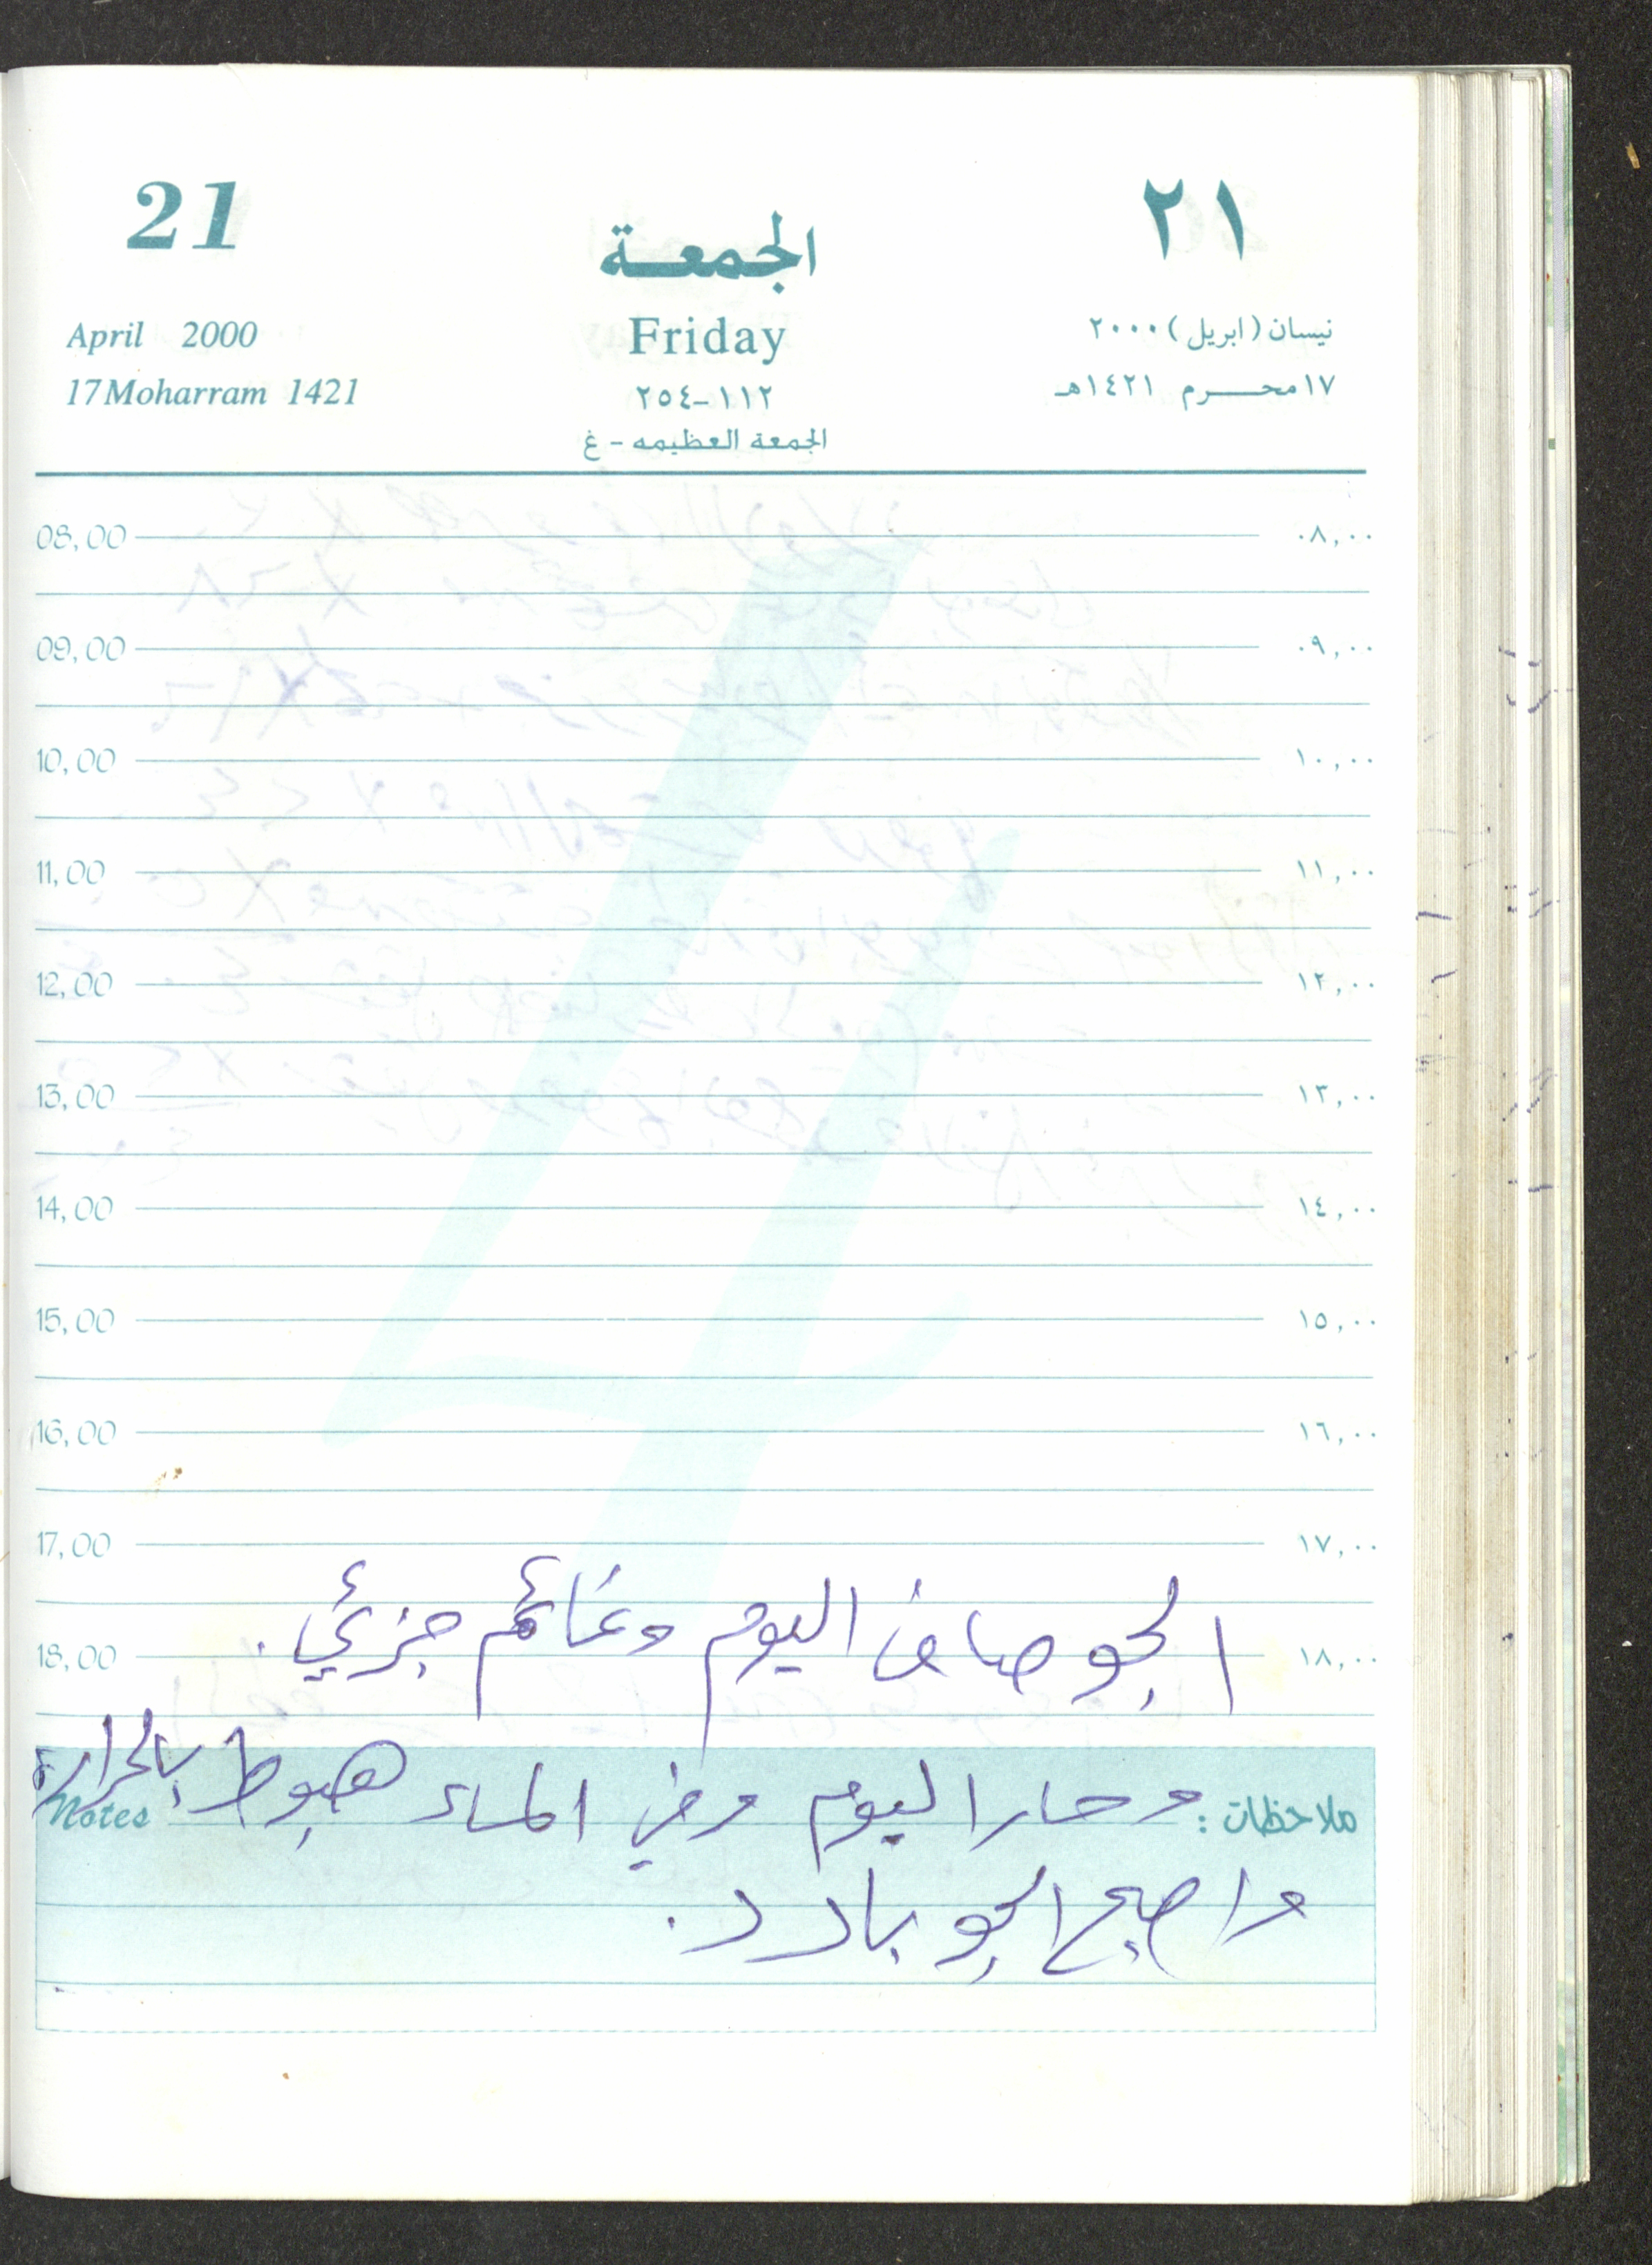 21 الجمعـة ٢١
April 2000 Friday نيسان (ابريل) ٢٠٠٠
17 Moharram 1421 ١١٢-٢٥٤ ١٧ محـــرم ١٤٢١هـ
الجمعة العظيمه - غ
08,00 ٠٨,٠٠
09,00 ٠٩,٠٠
10,00 ١٠,٠٠
11,00 ١١,٠٠
12,00 ١٢,٠٠
13,00 ١٣,٠٠
14,00 ١٤,٠٠
15,00 ١٥,٠٠
16,00 ١٦,٠٠
17,00 ١٧,٠٠
الجو صاف اليوم وغائم جزئي.
18,00 ١٨,٠٠
وحار اليوم وفي المساء هبوط بالحرارة
ملاحظات : Notes
واصبح الجو بارد.